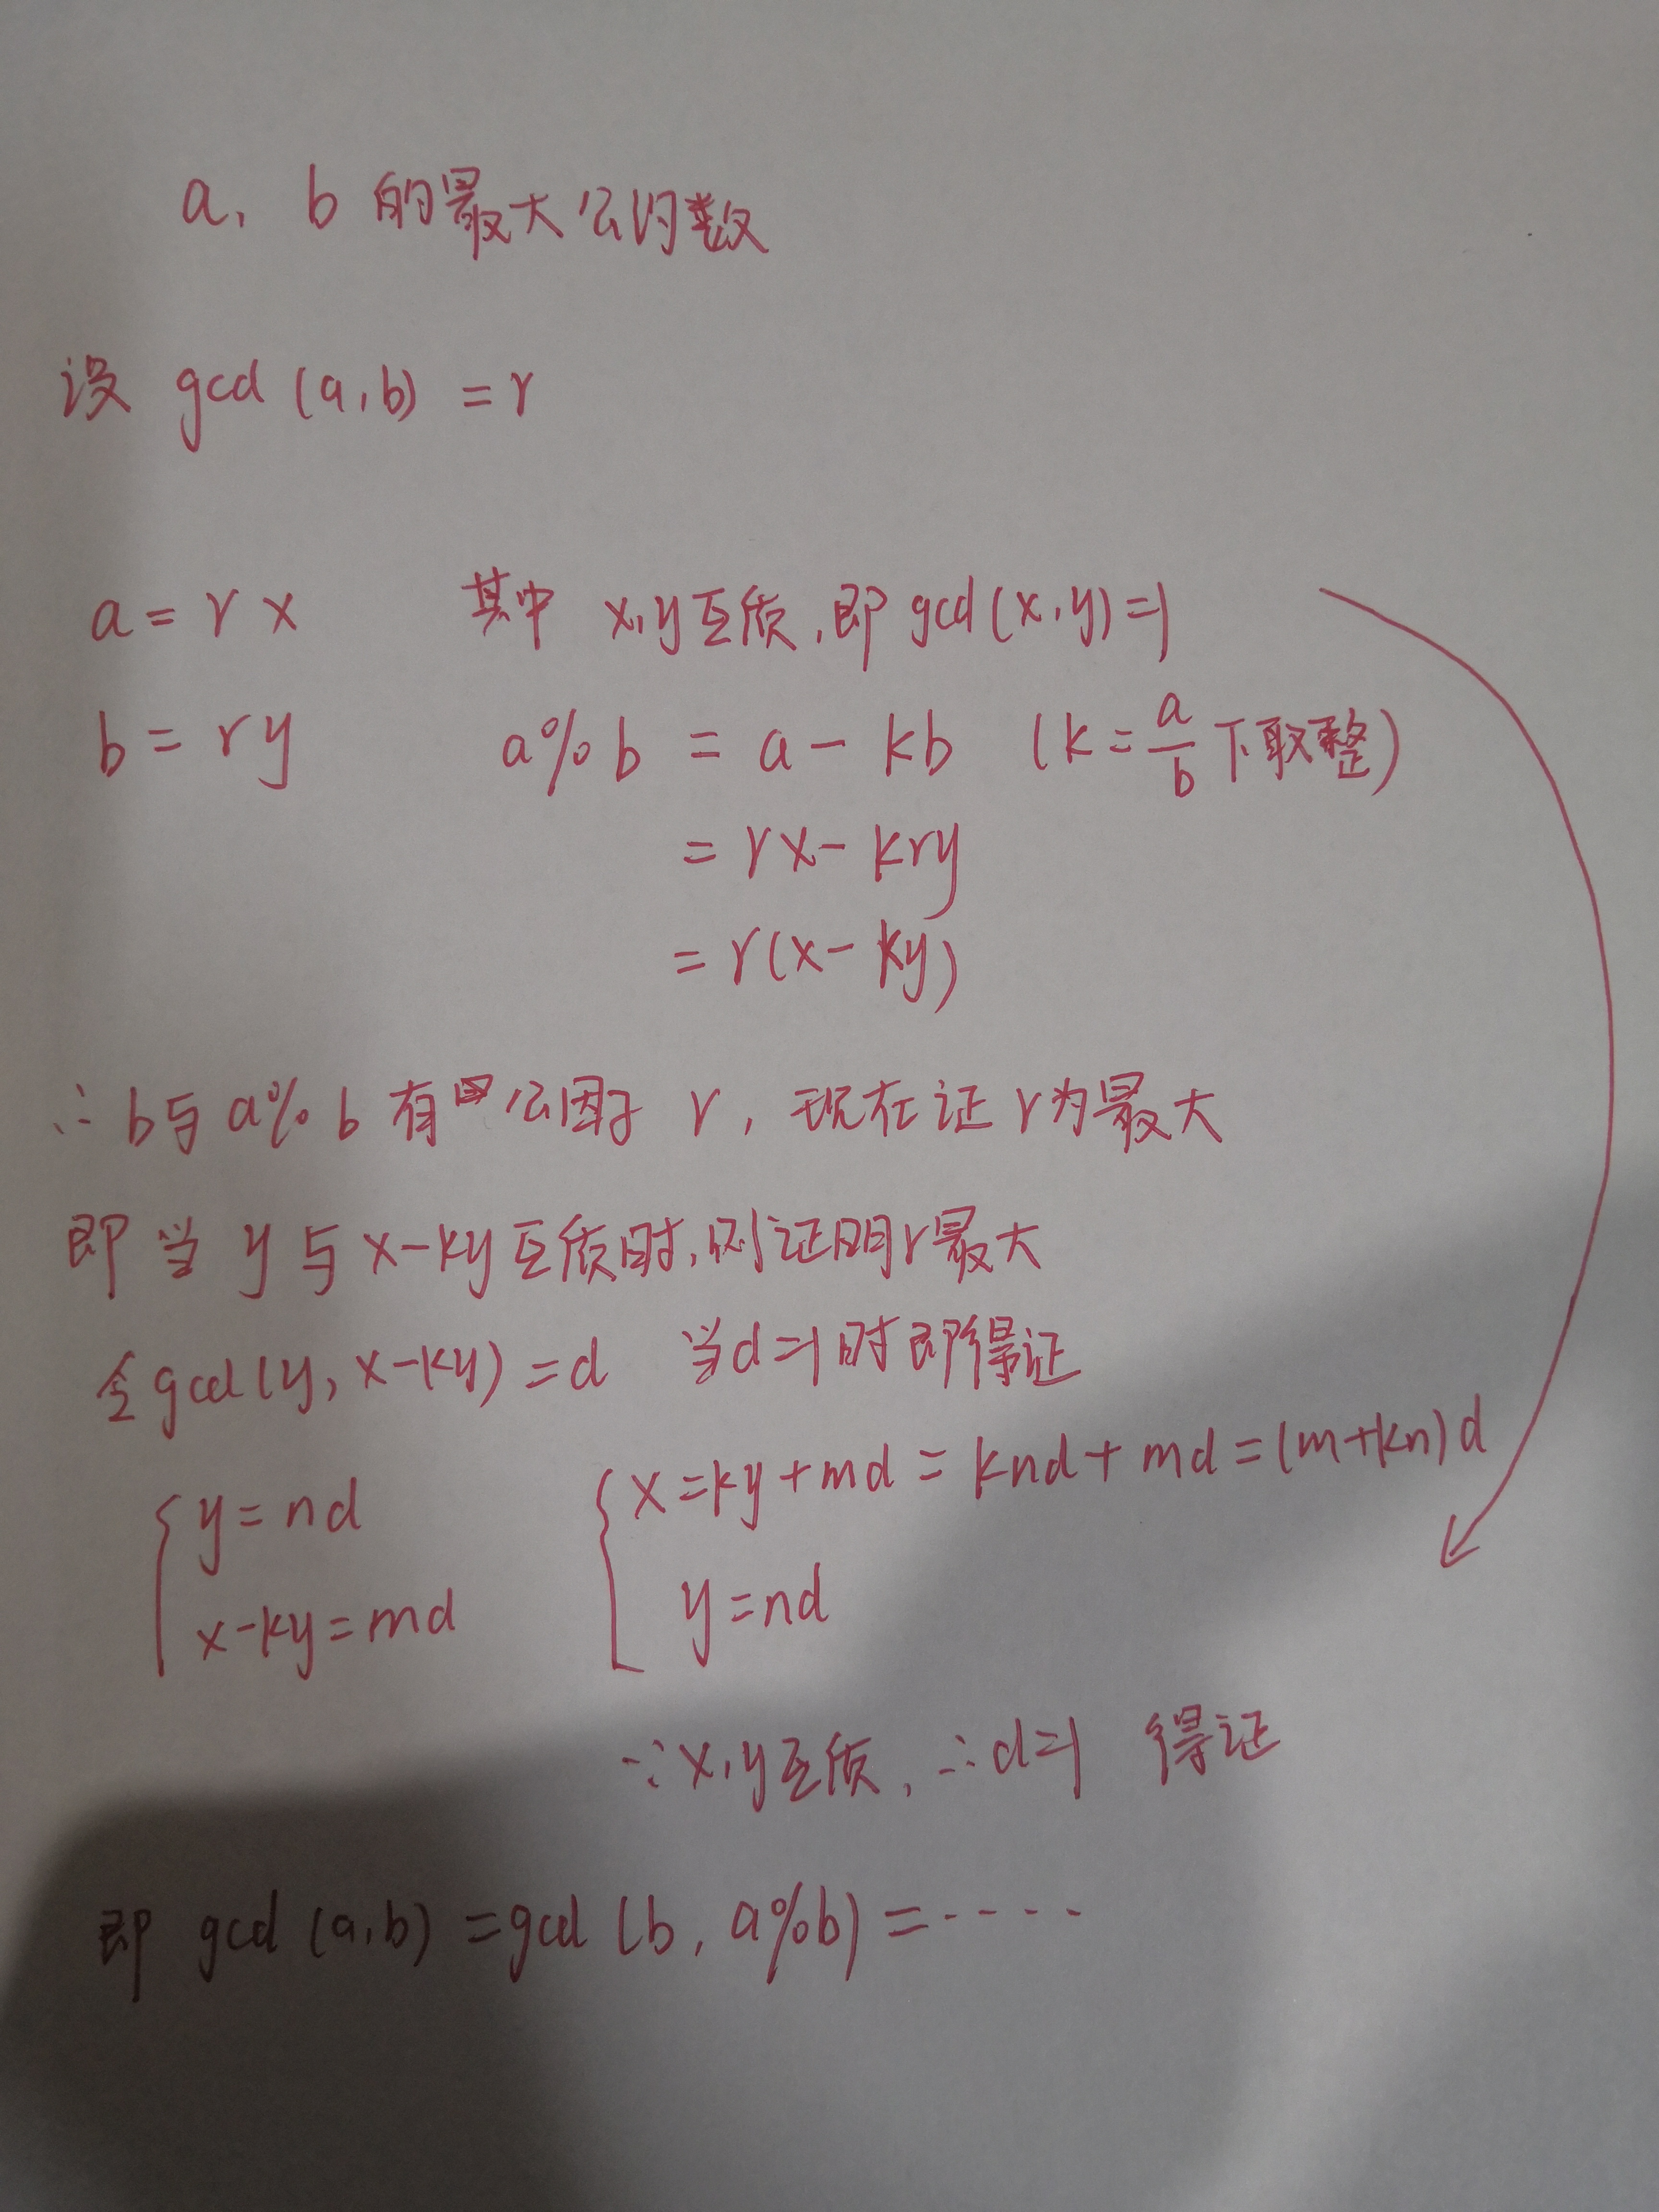 a, b 的最大公约数
设 gcd (a,b) = r
a = r x 其中 x,y互质,即gcd(x,y)=1
b = ry a%b = a - kb (k=a/b下取整)
= rx - kry
= r(x-ky)
∴b与a%b有公因子 r, 现在证r为最大
即当 y与x-ky互质时,则证明r最大
令gcd(y, x-ky) = d 当d=1时即得证
y=nd x=ky+md = knd+md=(m+kn)d
x-ky=md y=nd
∵x,y互质, ∴d=1 得证
即 gcd (a,b) =gcd (b, a%b) =-----